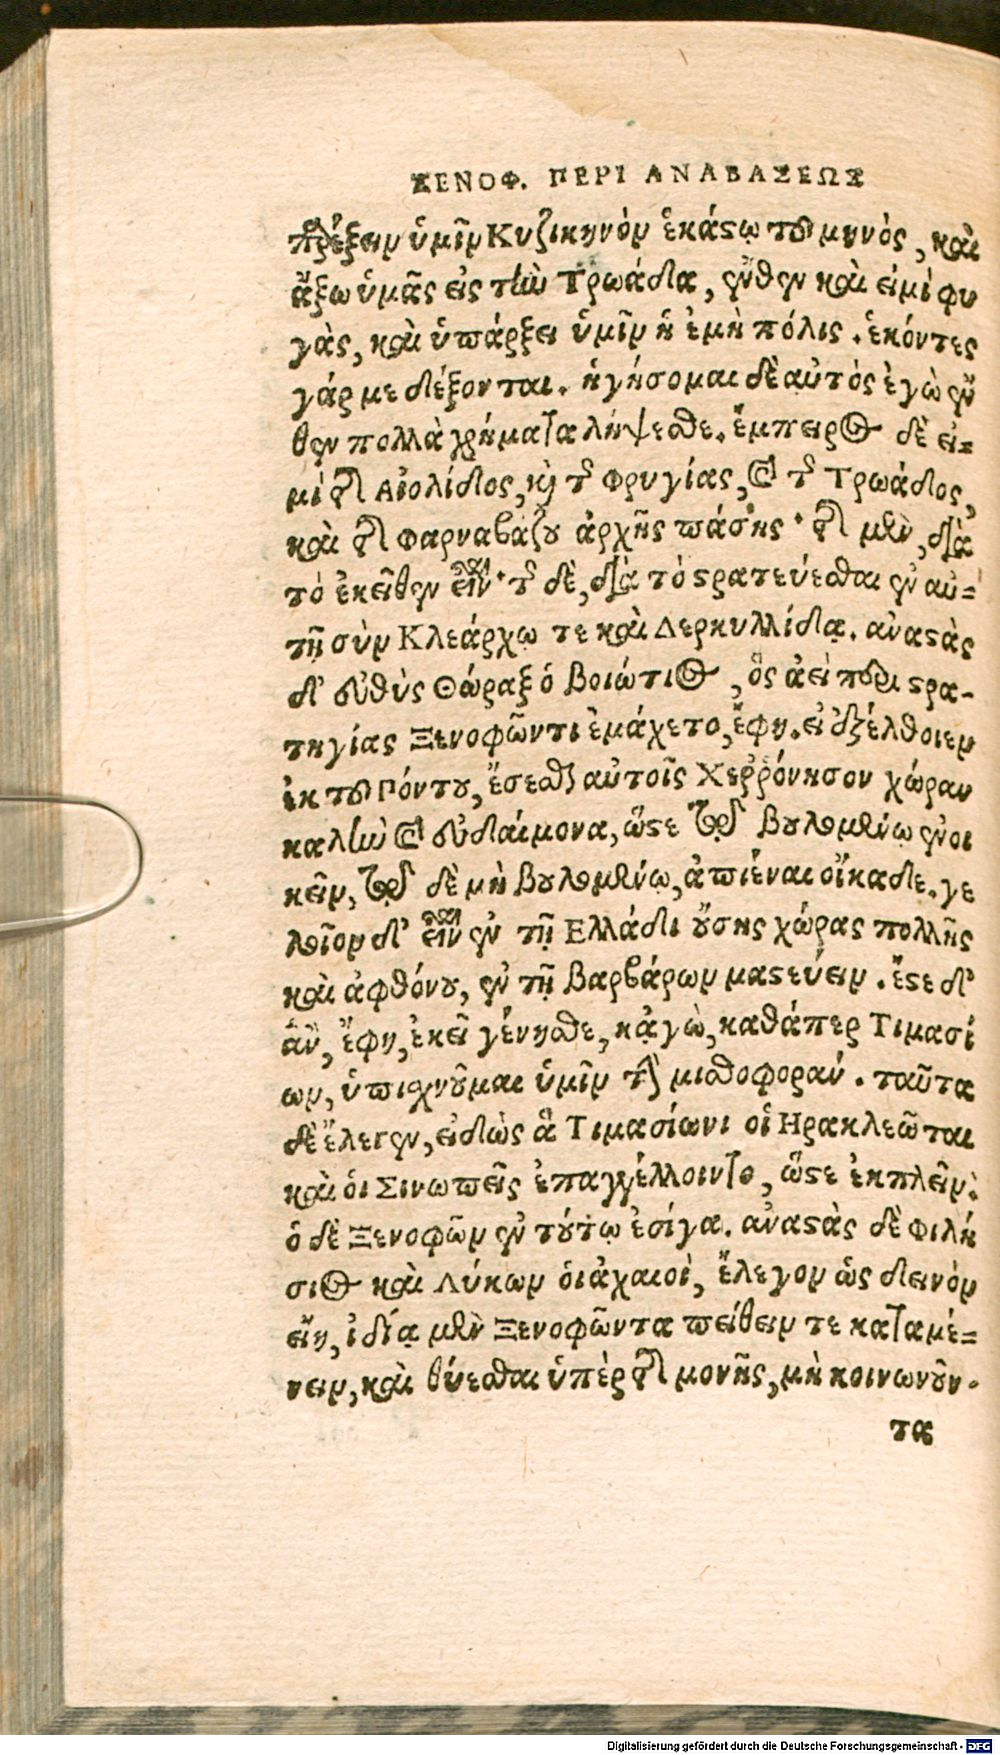 ΞΕΝΟΦ. ΠΕΡΙ ΑΝΑΒΑΣΕΩΣ
παρέξειν ὑμῖν Κυζικηνὸν ἑκάστῳ τοῦ μηνὸς, καὶ
ἄξω ὑμᾶς εἰς τὴν Τρωάδα, ἔνθεν καὶ εἰμὶ φυ
γὰς, καὶ ὑπάρξει ὑμῖν ἡ ἐμὴ πόλις. ἑκόντες
γάρ με δέξονται. ἡγήσομαι δὲ αὐτὸς ἐγὼ ἔν
θεν πολλὰ χρήματα λήψεσθε. ἔμπειρος δὲ εἰ-
μὶ τῆς Αἰολίδος, καὶ τῆς Φρυγίας, καὶ τῆς Τρωάδος,
καὶ τῆς Φαρναβάζου ἀρχῆς πάσης· τῆς μὲν, διὰ
τὸ ἐκεῖθεν εἶναι· τῆς δὲ, διὰ τὸ στρατεύεσθαι ἐν αὐ-
τῇ σὺν Κλεάρχῳ τε καὶ Δερκυλλίδᾳ. ἀναστὰς
δ' εὐθὺς Θώραξ ὁ Βοιώτιος, ὃς ἀεὶ περὶ στρα-
τηγίας Ξενοφῶντι ἐμάχετο, ἔφη. εἰ ἐξέλθοιεν
ἐκ τοῦ Πόντου, ἔσεσθαι αὐτοῖς Χερρόνησον χώραν
καλὴν καὶ εὐδαίμονα, ὥστε τῷ βουλομένῳ ἐνοι
κεῖν, τῷ δὲ μὴ βουλομένῳ, ἀπιέναι οἴκαδε. γε
λοῖον δ' εἶναι ἐν τῇ Ελλάδι οὔσης χώρας πολλῆς
καὶ ἀφθόνου, ἐν τῇ Βαρβάρων μαστεύειν. ἔστε δ'
ἂν, ἔφη, ἐκεῖ γένησθε, κᾀγὼ, καθάπερ Τιμασί
ων, ὑπισχνοῦμαι ὑμῖν τὴν μισθοφοράν. ταῦτα
δὲ ἔλεγεν, εἰδὼς ἃ Τιμασίωνι οἱ Ηρακλεῶται
καὶ οἱ Σινωπεῖς ἐπαγγέλλοιντο, ὥστε ἐκπλεῖν.
ὁ δὲ Ξενοφῶν ἐν τούτῳ ἐσίγα. ἀναστὰς δὲ Φιλή
σιος καὶ Λύκων ὁι ἀχαιοὶ, ἔλεγον ὡς δεινὸν
εἴη, ἰδίᾳ μὲν Ξενοφῶντα πείθειν τε καταμέ-
νειν, καὶ θύεσθαι ὑπὲρ τῆς μονῆς, μὴ κοινωνοῦν-
τα
Digitalisierung gefördert durch die Deutsche Forschungsgemeinschaft - DFG